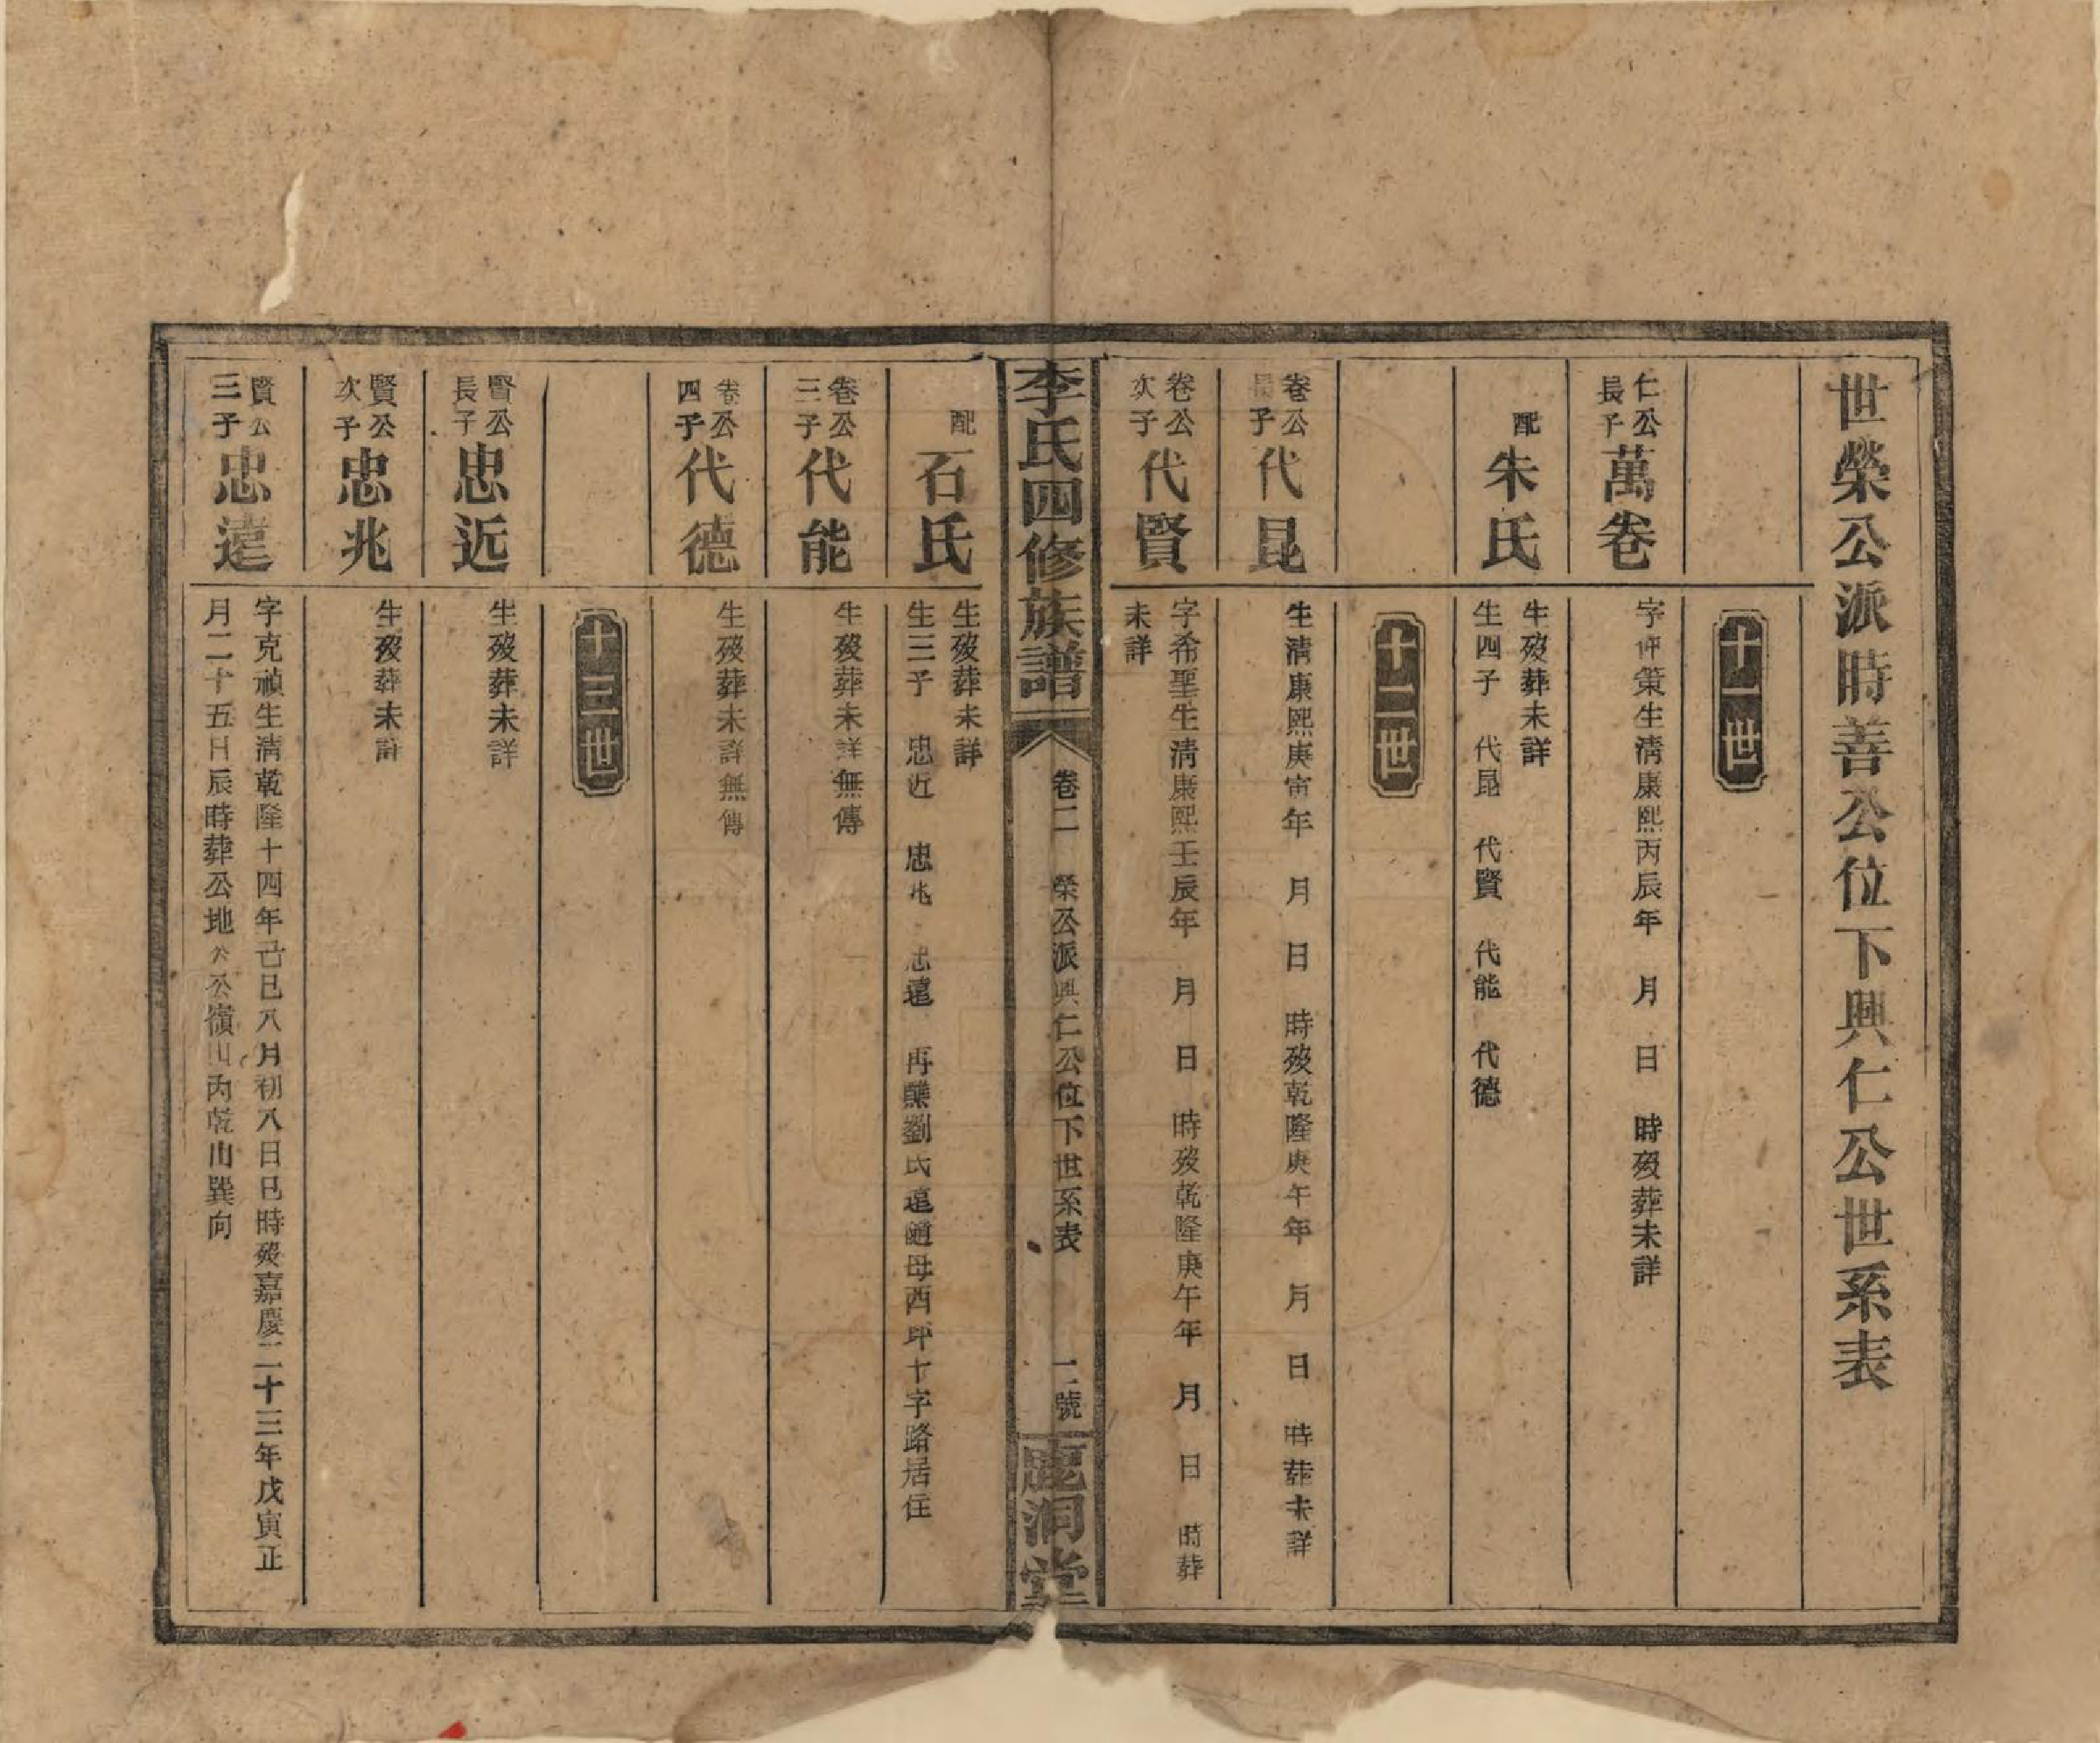 世榮公派時善公位下興仁公世系表
十一世
仁公長子
萬卷
字仲策生清康熙丙辰年 月 日 時殁葬未詳
配
朱氏
生殁葬未詳
生四子 代昆 代賢 代能 代德
十二世
卷公長子
代昆
生清康熙庚寅年 月 日 時殁乾隆庚午年 月 日 時葬未詳
卷公次子
代賢
字希聖生清康熙壬辰年 月 日 時殁乾隆庚午年 月 日 時葬
未詳
李氏四修族譜
卷二 榮公派興仁公位下世系表 二號
鹿洞堂
配
石氏
生殁葬未詳
生三子 忠近 忠兆 忠遠 再醮劉氏遠隨母西坪十字路居住
卷公三子
代能
生殁葬未詳無傳
卷公四子
代德
生殁葬未詳無傳
十三世
賢公長子
忠近
生殁葬未詳
賢公次子
忠兆
生殁葬未詳
賢公三子
忠遠
字克禎生清乾隆十四年己巳八月初八日巳時殁嘉慶二十三年戊寅正
月二十五日辰時葬公地公嶺山內乾山巽向